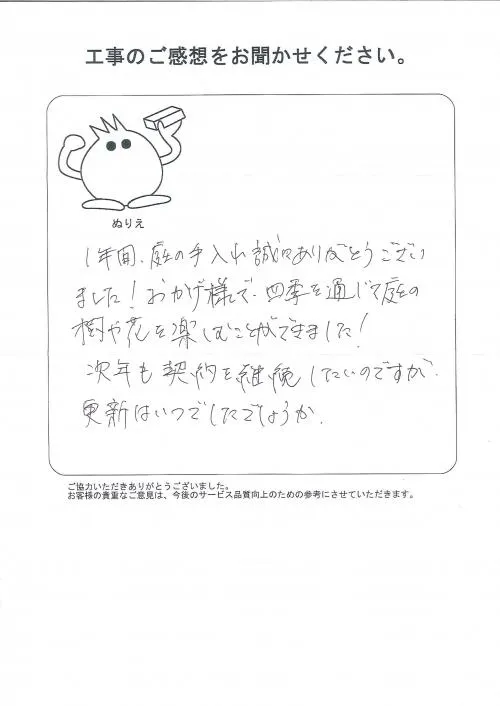 工事のご感想をお聞かせください。
ぬりえ
1年間、庭の手入れ誠にありがとうござい
ました!おかげ様で、四季を通じて庭の
樹や花を楽しむことができました!
次年も契約を継続したいのですが、
更新はいつでしたでしょうか。
ご協力いただきありがとうございました。
お客様の貴重なご意見は、今後のサービス品質向上のための参考にさせていただきます。